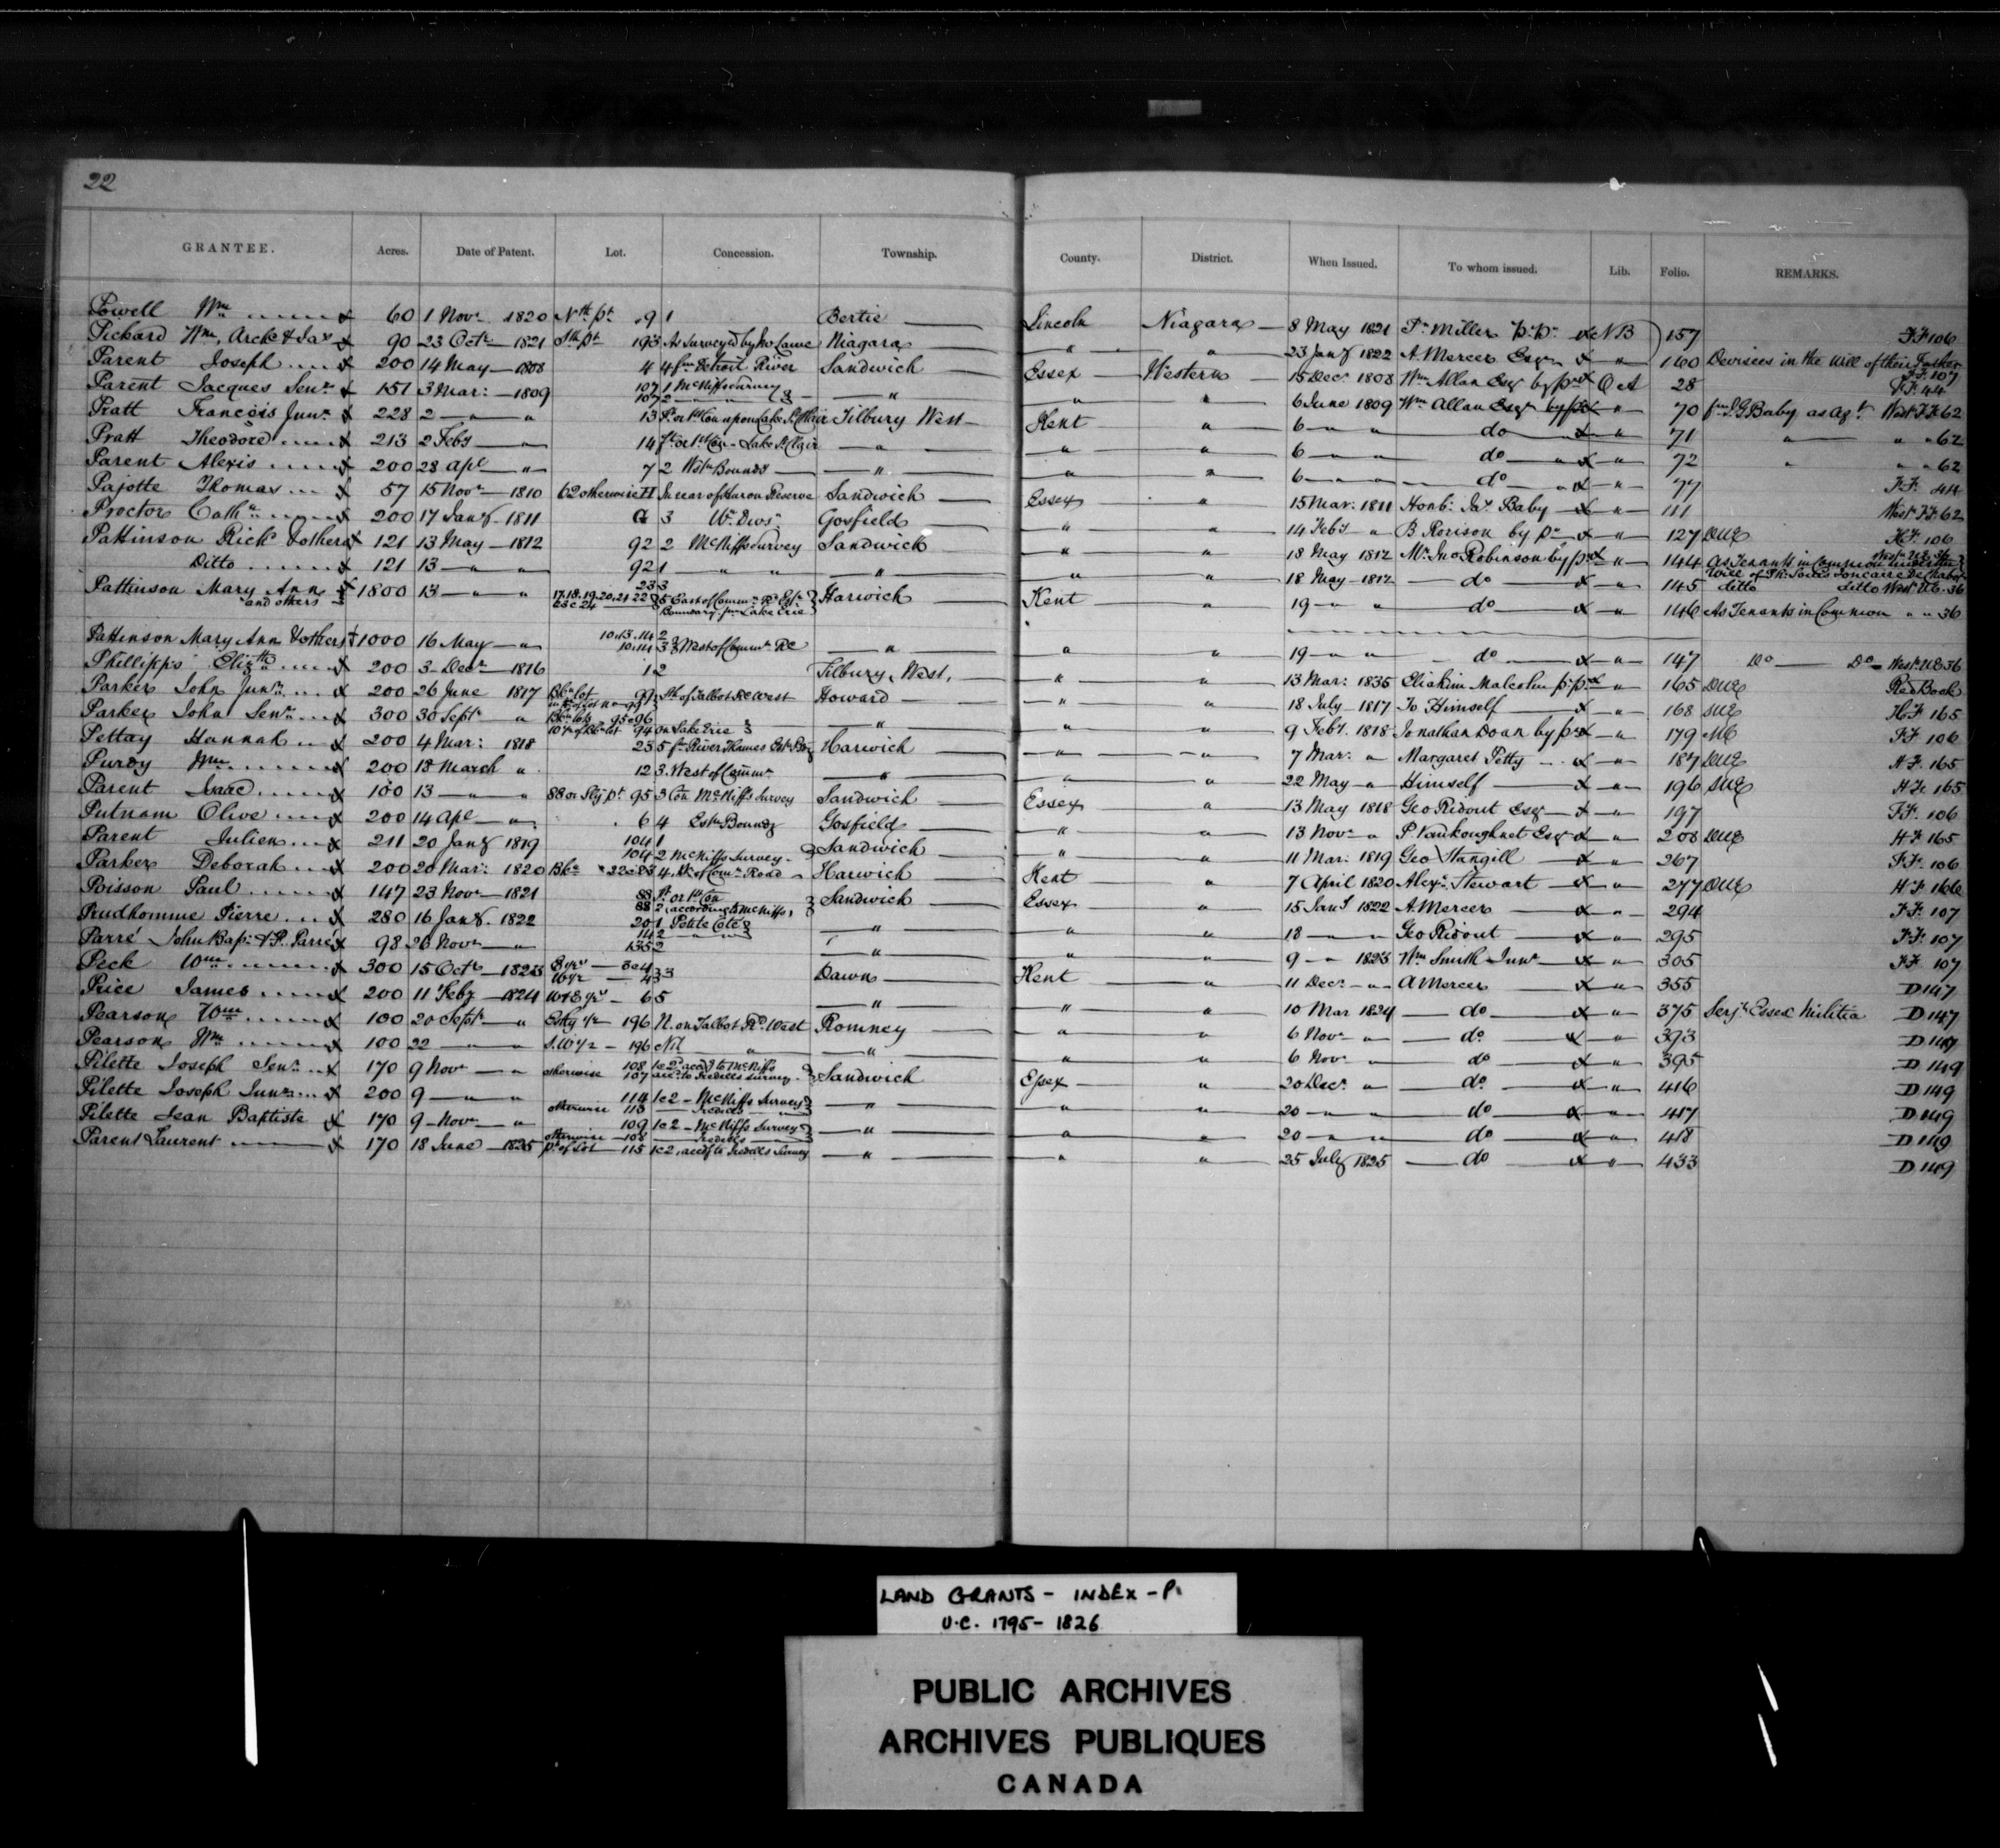 22
GRANTEE. Acres. Date of Patent. Lot. Concession. Township. County. District. When Issued. To whom issued. Lib. Folio. REMARKS.
Powell Wm 60 1 Novr 1820 Nth pt 9 1 Bertie Lincoln Niagara 8 May 1821 Millen NB 157 FF 106
Pickard Wm, Archd & Jas 90 23 Octr 1821 Sth pt 193 As Surveyed by Niagara " " 23 Jany 1822 A. Mercer Esqr " 160 Devisees in the will of their Father FF 107
Parent Joseph 200 14 May 1808 4 4 fm Detroit River Sandwich Essex Western 15 Decr 1808 Wm Allan Esqr by Oct A 28 FF 44
Parent Jacques Senr 151 3 Mar: 1809 107 1 McNiffs Survey
107 2 " " " " 6 June 1809 Wm Allan Esqr " 70 fm J. G Baby as agt West FF 62
Pratt Francois Junr 228 2 " " 13 Ft or 1st Con upon Lake St Clair Tilbury West Kent " 6 " " do " 71 " " " 62
Pratt Theodore 213 2 Feby " 14 Ft or 1st Con - Lake St Clair " " " 6 " " do " 72 " " " 62
Parent Alexis 200 28 Apl " 7 2 Wstn Boundy " " " 6 " " do " 77 FF 44
Pajotte Thomas 57 15 Novr 1810 62 otherwise H In rear of Huron Reserve Sandwich Essex " 15 Mar: 1811 Honb: Jas Baby " 111 West FF 62
Proctor Cathe 200 17 Jany 1811 G 3 Wn Divn Gosfield " " 14 Feby " B Rorison by pr " 127 DUE HF 106
Pattinson Richd & others 121 13 May 1812 92 2 McNiffs Survey Sandwich " " 18 May 1812 Mr Jno Robinson by pr " 144 As Tenants in Common under the
Ditto 121 13 " " 92 1 " " " " " 18 May 1812 do " 145 ditto ditto West UE 36
Pattinson Mary Ann and others 1800 13 " " 17.18.19.20.21 22 23 3
E & C 24 5 East of Commn Rd Esn Boundary fm Lake Erie Harwich Kent " 19 " " do " 146 As Tenants in Common " " 36
Pattinson Mary Ann & others 1000 16 May " 10.13.14 2
10.14 3 West of Commn Rd " " " 19 " " do " 147 Do Do West UE 36
Phillipps Elizth 200 3 Decr 1816 1 2 Tilbury West " " 13 Mar: 1835 Eliakim Malcolm " 165 DUE Red Book
Parker John Junr 200 26 June 1817 Bkn lot 99 Sth of Talbot Rd West Howard " " 18 July 1817 To Himself " 168 SUE HF 165
Parker John Senr 300 30 Sept " Bkn lots 95&96 on Lake Erie " " " 9 Feby 1818 Jonathan Doan by pr " 179 ME FF 106
Pettay Hannah 200 4 Mar: 1818 23 5 fm River Thames Harwich " " 7 Mar: " Margaret Petty " 187 DUE HF 165
Purdy Wm 200 18 March " 12 3 West of Commn " " " 22 May " Himself " 196 SUE HF 165
Parent Isaac 100 13 " " 88 or Sly pt 95 3 Con McNiffs Survey Sandwich Essex " 13 May 1818 Geo Ridout Esqr " 197 FF 106
Putnam Olive 200 14 Apl " 6 4 Estn Boundy Gosfield " " 13 Novr " P. Vankoughnet Esqr " 208 DUE HF 165
Parent Julien 211 20 Jany 1819 104 1
104 2 McNiffs Survey Sandwich " " 11 Mar: 1819 Geo Stangill " 267 FF 106
Parker Deborah 200 20 Mar: 1820 Bkn 22&23 4 W. of Comn Road Harwich Kent " 7 April 1820 Alexr Stewart " 277 DUE HF 166
Poisson Paul 147 23 Novr 1821 88 Ft or 1st Con
88 2, according to McNiffs Sandwich Essex " 15 Jany 1822 A. Mercer " 294 FF 107
Prudhomme Pierre 280 16 Jany 1822 20 1 Petite Cote
14 2 " " " " 18 " " Geo Ridout " 295 FF 107
Parré John Bapt & P. Parré 98 26 Novr " 135 2 " " " 9 " 1823 Wm Smith Junr " 305 FF 107
Peck Wm 300 15 Octr 1823 E ½ 3&4
W ½ 4 3 Dawn Kent " 11 Decr " A Mercer " 355 D 147
Price James 200 11 Feby 1824 W&E ½ 6 5 " " " 10 Mar 1824 do " 375 Serjt Essex Militia D 147
Pearson Wm 100 20 Septr " Estly ½ 196 N. on Talbot Rd West Romney " " 6 Novr " do " 393 D 149
Pearson Wm 100 22 " " S.W ½ 196 Nil " " " " 6 Novr " do " 395 D 149
Pilette Joseph Senr 170 9 Novr " 108 1&2 accdg to McNiffs
otherwise 107 accdg to Iredells Survey Sandwich Essex " 20 Decr " do " 416 D 149
Pilette Joseph Junr 200 9 " " 114 1&2 McNiffs Survey
otherwise 113 Iredells " " " " 20 " " do " 417 D 149
Pilette Jean Baptiste 170 9 Novr " 109 1&2 McNiffs Survey
otherwise 108 Iredells " " " 20 " " do " 418 D 149
Parent Laurent 170 18 June 1825 pt of Lot 115 1&2, accdg to Iredells Survey " " " 25 July 1825 do " 433 D 149
LAND GRANTS - INDEX - P.
U.C. 1795-1826
PUBLIC ARCHIVES
ARCHIVES PUBLIQUES
CANADA